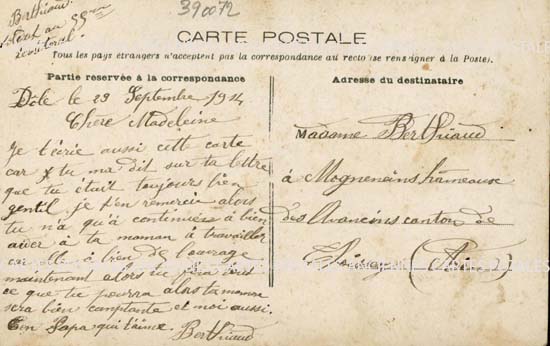 390072
Berthiaud
55eme
territorial.
CARTE POSTALE
Tous les pays étrangers n'acceptent pas la correspondance au recto (se renseigner à la Poste).
Partie réservée à la correspondance
Dôle le 29 Septembre 1914
Chere Madeleine
Je técrie aussi cette carte
car tu ma dit sur ta lettre
que tu était toujours bien
gentil je t'en remercie alors
tu n'a qu'à continuér à bien
aider à ta maman à travailler
car elle à bien de l'ouvrage
maintenant alors tu fera tout
ce que tu pourra alors ta maman
sera bien comptante et moi aussi.
Ton Papa qui t'aime. Berthiaud
Adresse du destinataire
Madame Berthiaud
à Mogneneins hameaux
des Avaneins canton de
Thoissey (Ain)